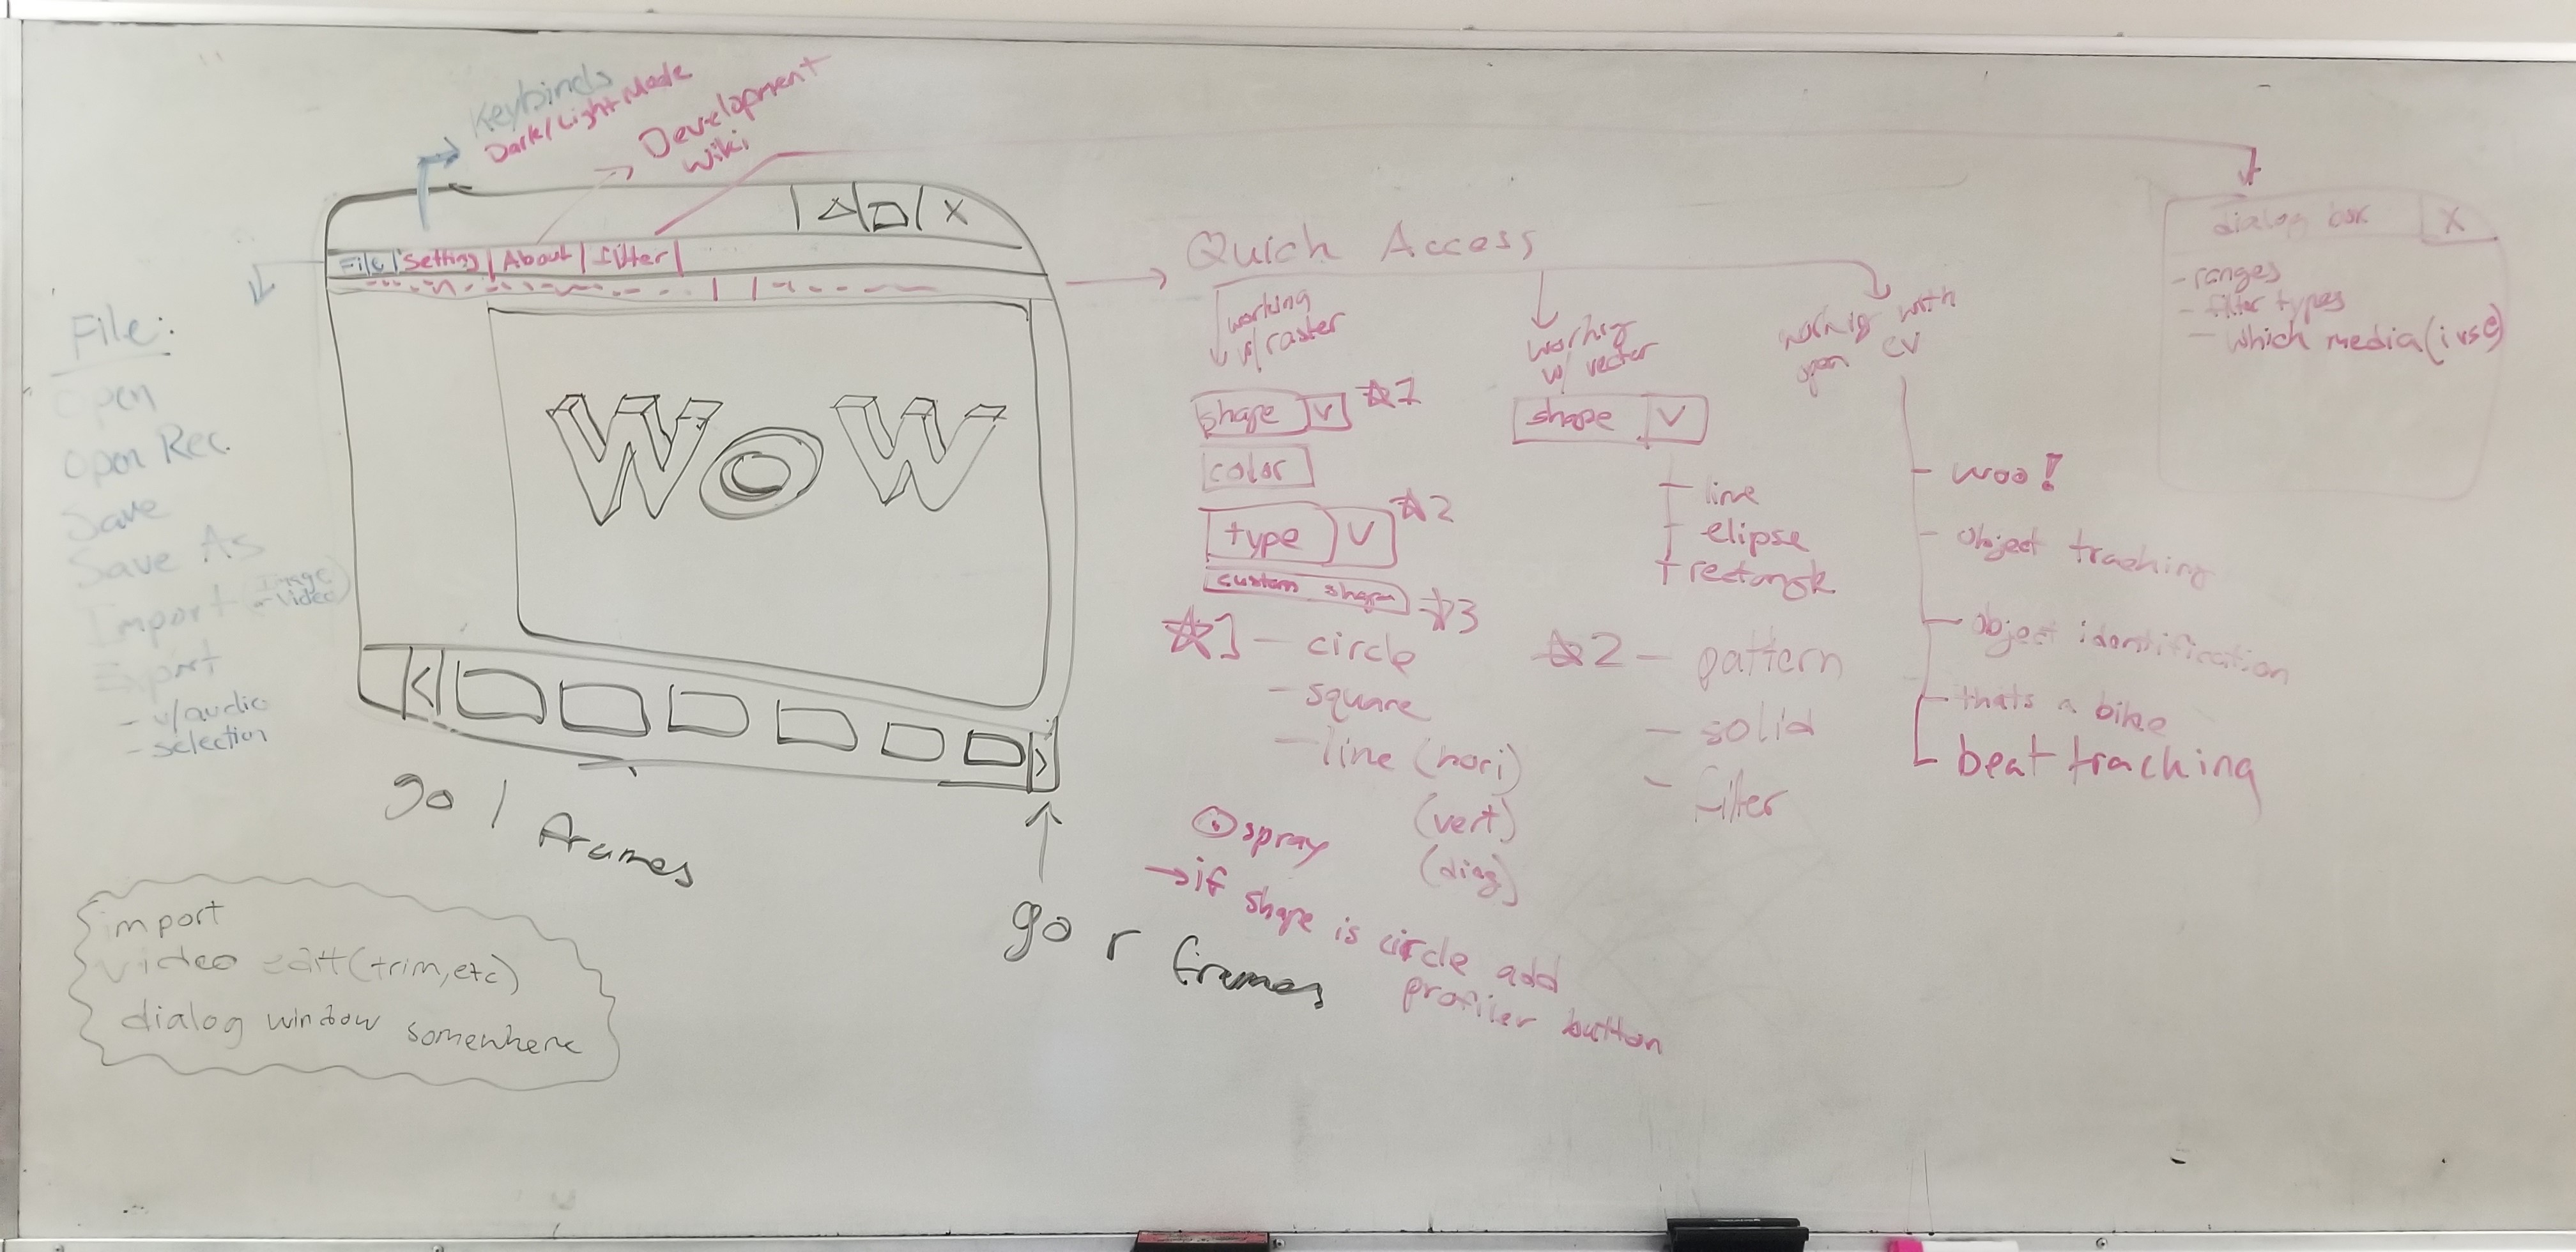 Keybinds
Dark/Light Mode
Development
Wiki
X
File Setting About filter
File:
Open
Open Rec.
Save
Save As
Import (Image
Video)
Export
- w/audio
- selection
WOW
go l frames
go r frames
import
video edit (trim, etc)
dialog window somewhere
Quick Access
working
w/ raster
shape V ☆1
color
type V ☆2
custom shape ☆3
☆1 - circle
- square
- line (hori)
(vert)
(diag)
spray
→ if shape is circle add
profiler button
working
w/ vector
shape V
line
elipse
rectangle
☆2 - pattern
- solid
- filter
working with
open CV
- woo!
- object tracking
- object identification
- thats a bike
- beat tracking
dialog box X
- ranges
- filter types
- which media